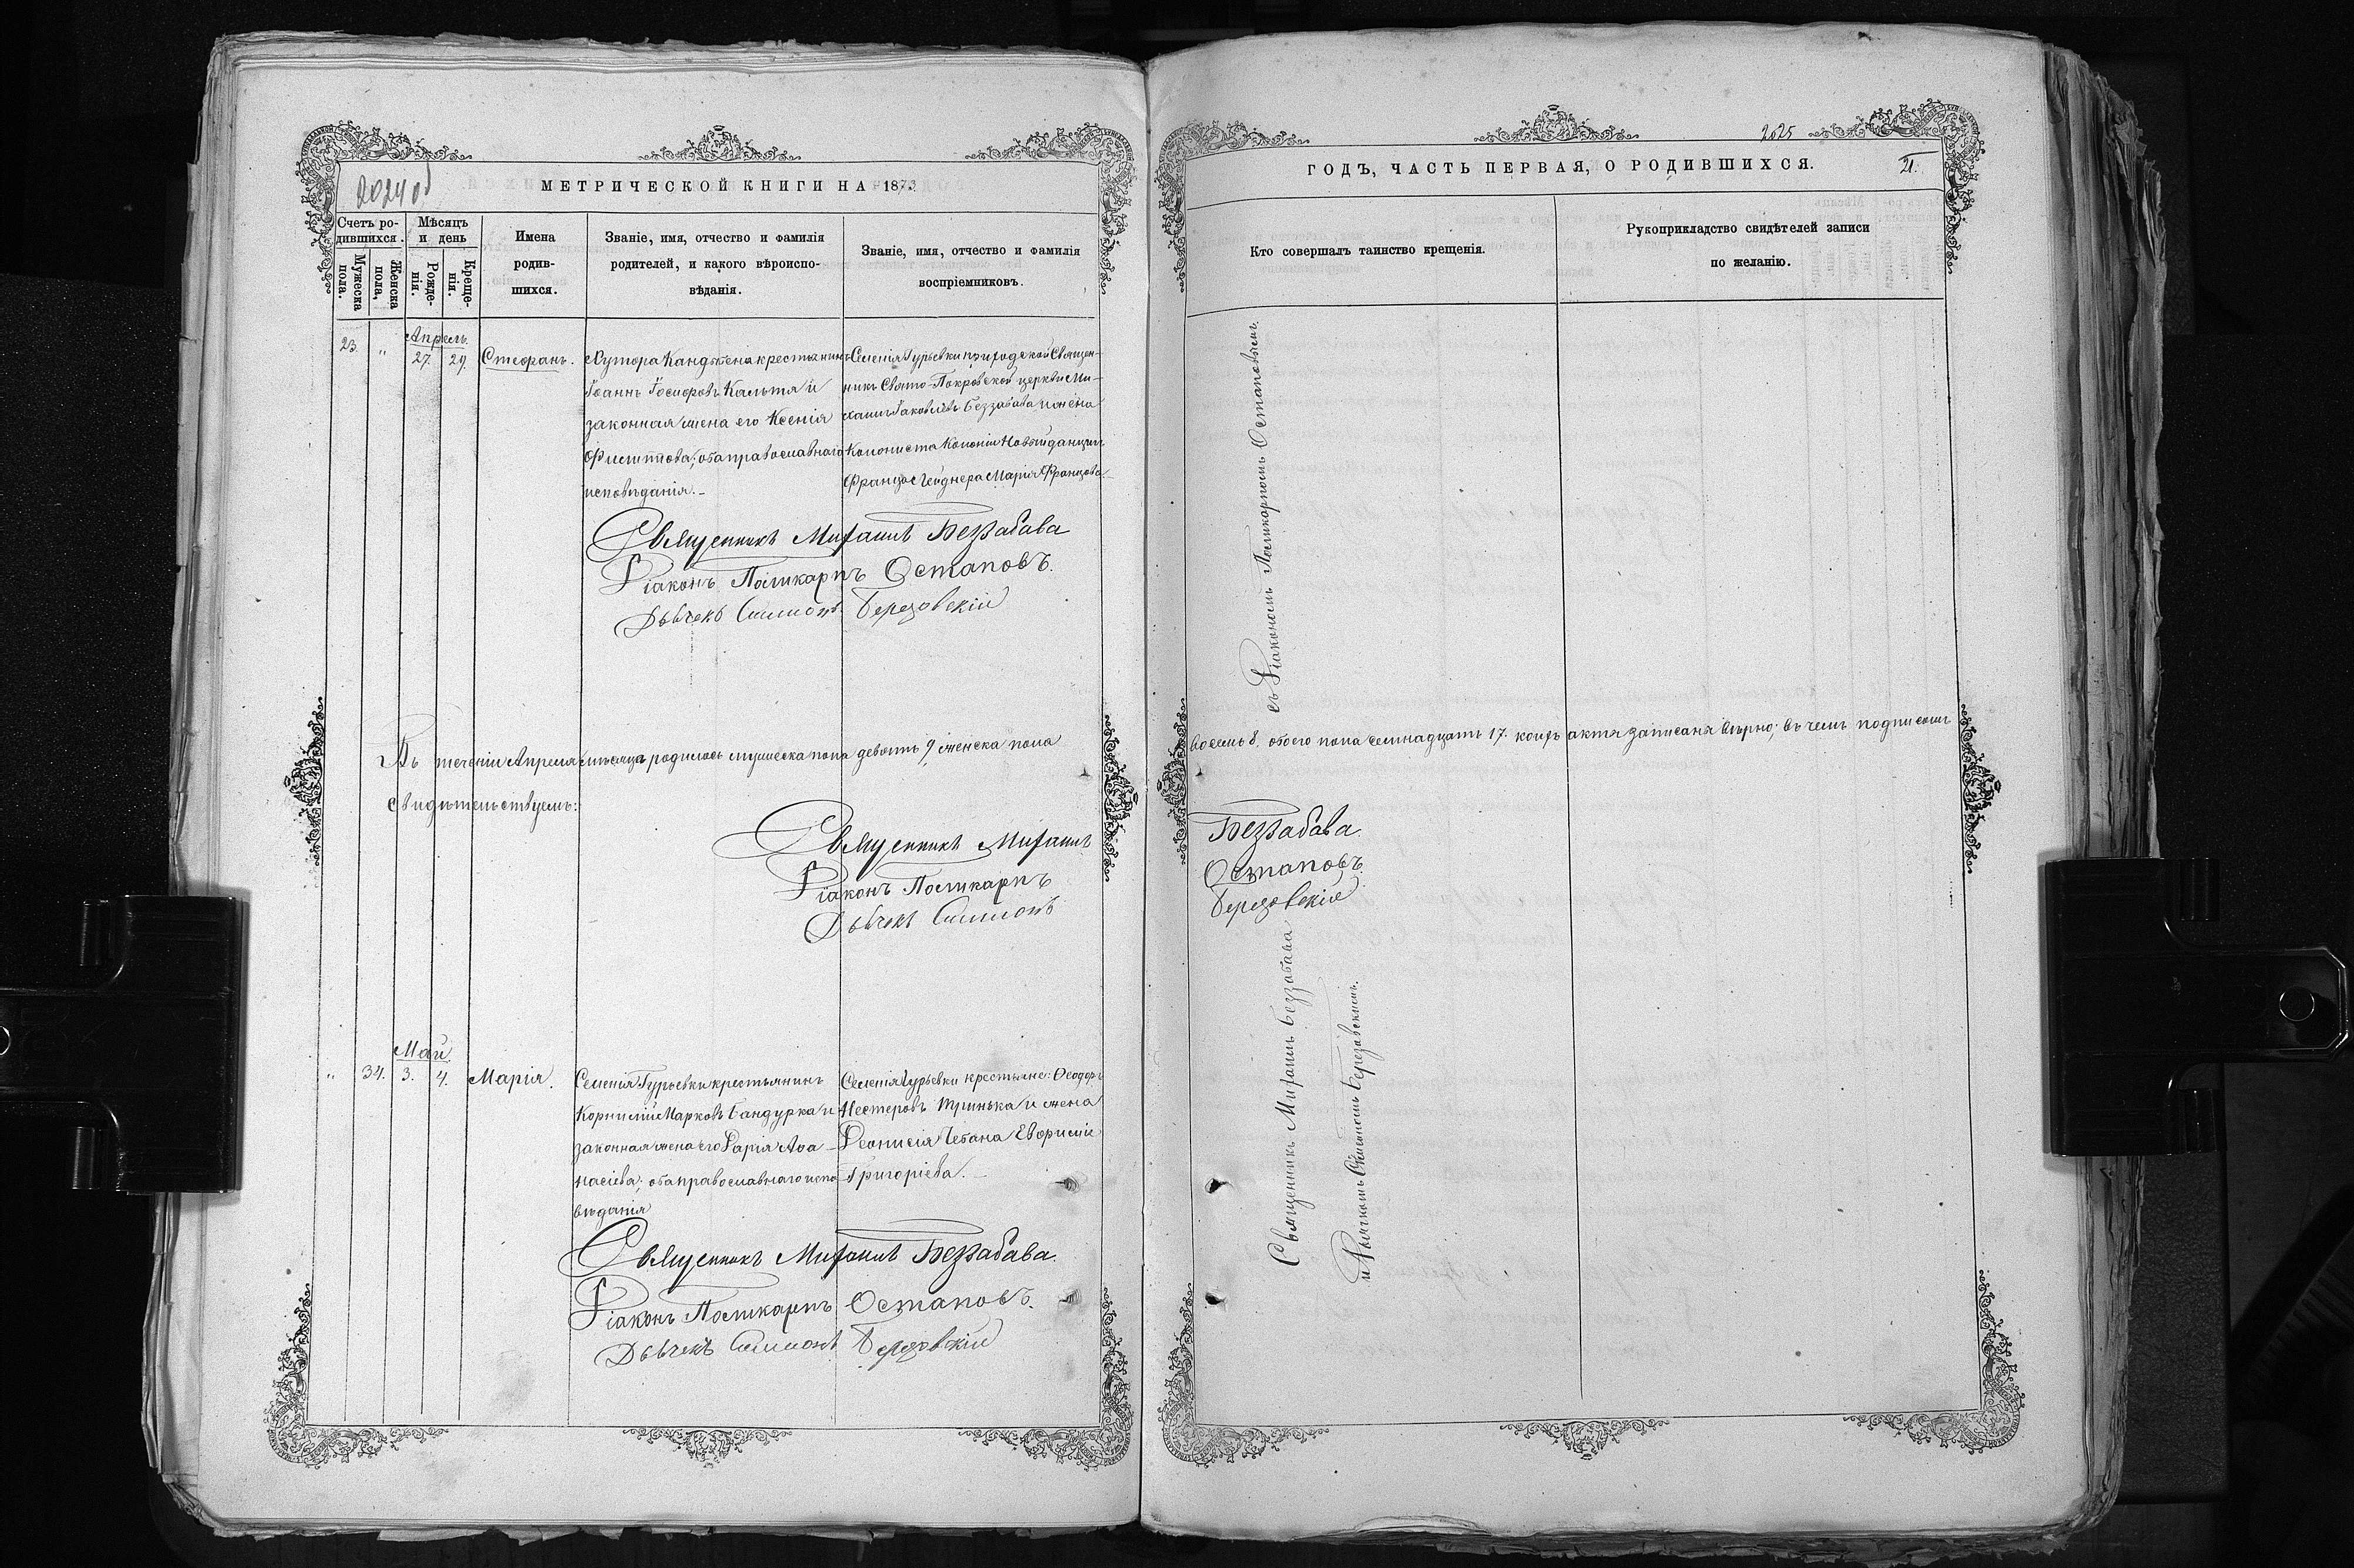 2024 об
МЕТРИЧЕСКОЙ КНИГИ НА 187
Счетъ ро-
дившихся.
Мужеска пола.
Женска пола,
Мѣсяцъ
и день
Рожде-
нія.
Креще-
нія.
Имена
родив-
шихся.
Званіе, имя, отчество и фамилія
родителей, и какого вѣроиспо-
вѣданія.
Званіе, имя, отчество и фамилія
воспріемниковъ.
Апрель.
23. " 27. 29. Стефанъ.
Хутора Кандыбина крестьянинъ
Іоаннъ Іосифовъ Кальтя и
законная жена его Ксенія
Филиппова, оба православнаго
исповѣданія.
Селенія Гурьевки приходской Священ-
никъ Свято-Покровской церкви Ми-
хаилъ Іаковлевъ Беззабава и жена
Колониста Колоніи Новый Данцигъ
Франца Гейднера Марія Францова.
Священникъ Михаилъ Беззабава
Діаконъ Поликарпъ Остаповъ.
Дьячекъ Симеонъ Березовскій
Въ теченіи Апреля мѣсяца родилось мужеска пола девять 9, женска пола
свидѣтельствуемъ:
Священникъ Михаилъ
Діаконъ Поликарпъ
Дьячекъ Симеонъ
Май.
" 34. 3. 4. Марія.
Селенія Гурьевки крестьянинъ
Корнилій Марковъ Бандурка и
законная жена его Дарія Аѳа-
насіева; оба православнаго испо-
вѣданія
Селенія Гурьевки крестьяне: Ѳеодоръ
Нестеровъ Тринька и жена
Деонисія Чебана Евфимія
Григоріева.
Священникъ Михаилъ Беззабава.
Діаконъ Поликарпъ Остаповъ.
Дьячекъ Симеонъ Березовскій
2025
ГОДЪ, ЧАСТЬ ПЕРВАЯ, О РОДИВШИХСЯ.
21.
Кто совершалъ таинство крещенія.
Рукоприкладство свидѣтелей записи
по желанію.
Священникъ Михаилъ Беззабава
съ Діакономъ Поликарпомъ Остаповымъ.
и Дьячкомъ Симеономъ Березовскимъ.
восемь 8. обоего пола семнадцать 17. коихъ акты записаны вѣрно; въ чемъ подписомъ
Беззабава.
Остаповъ.
Березовскій